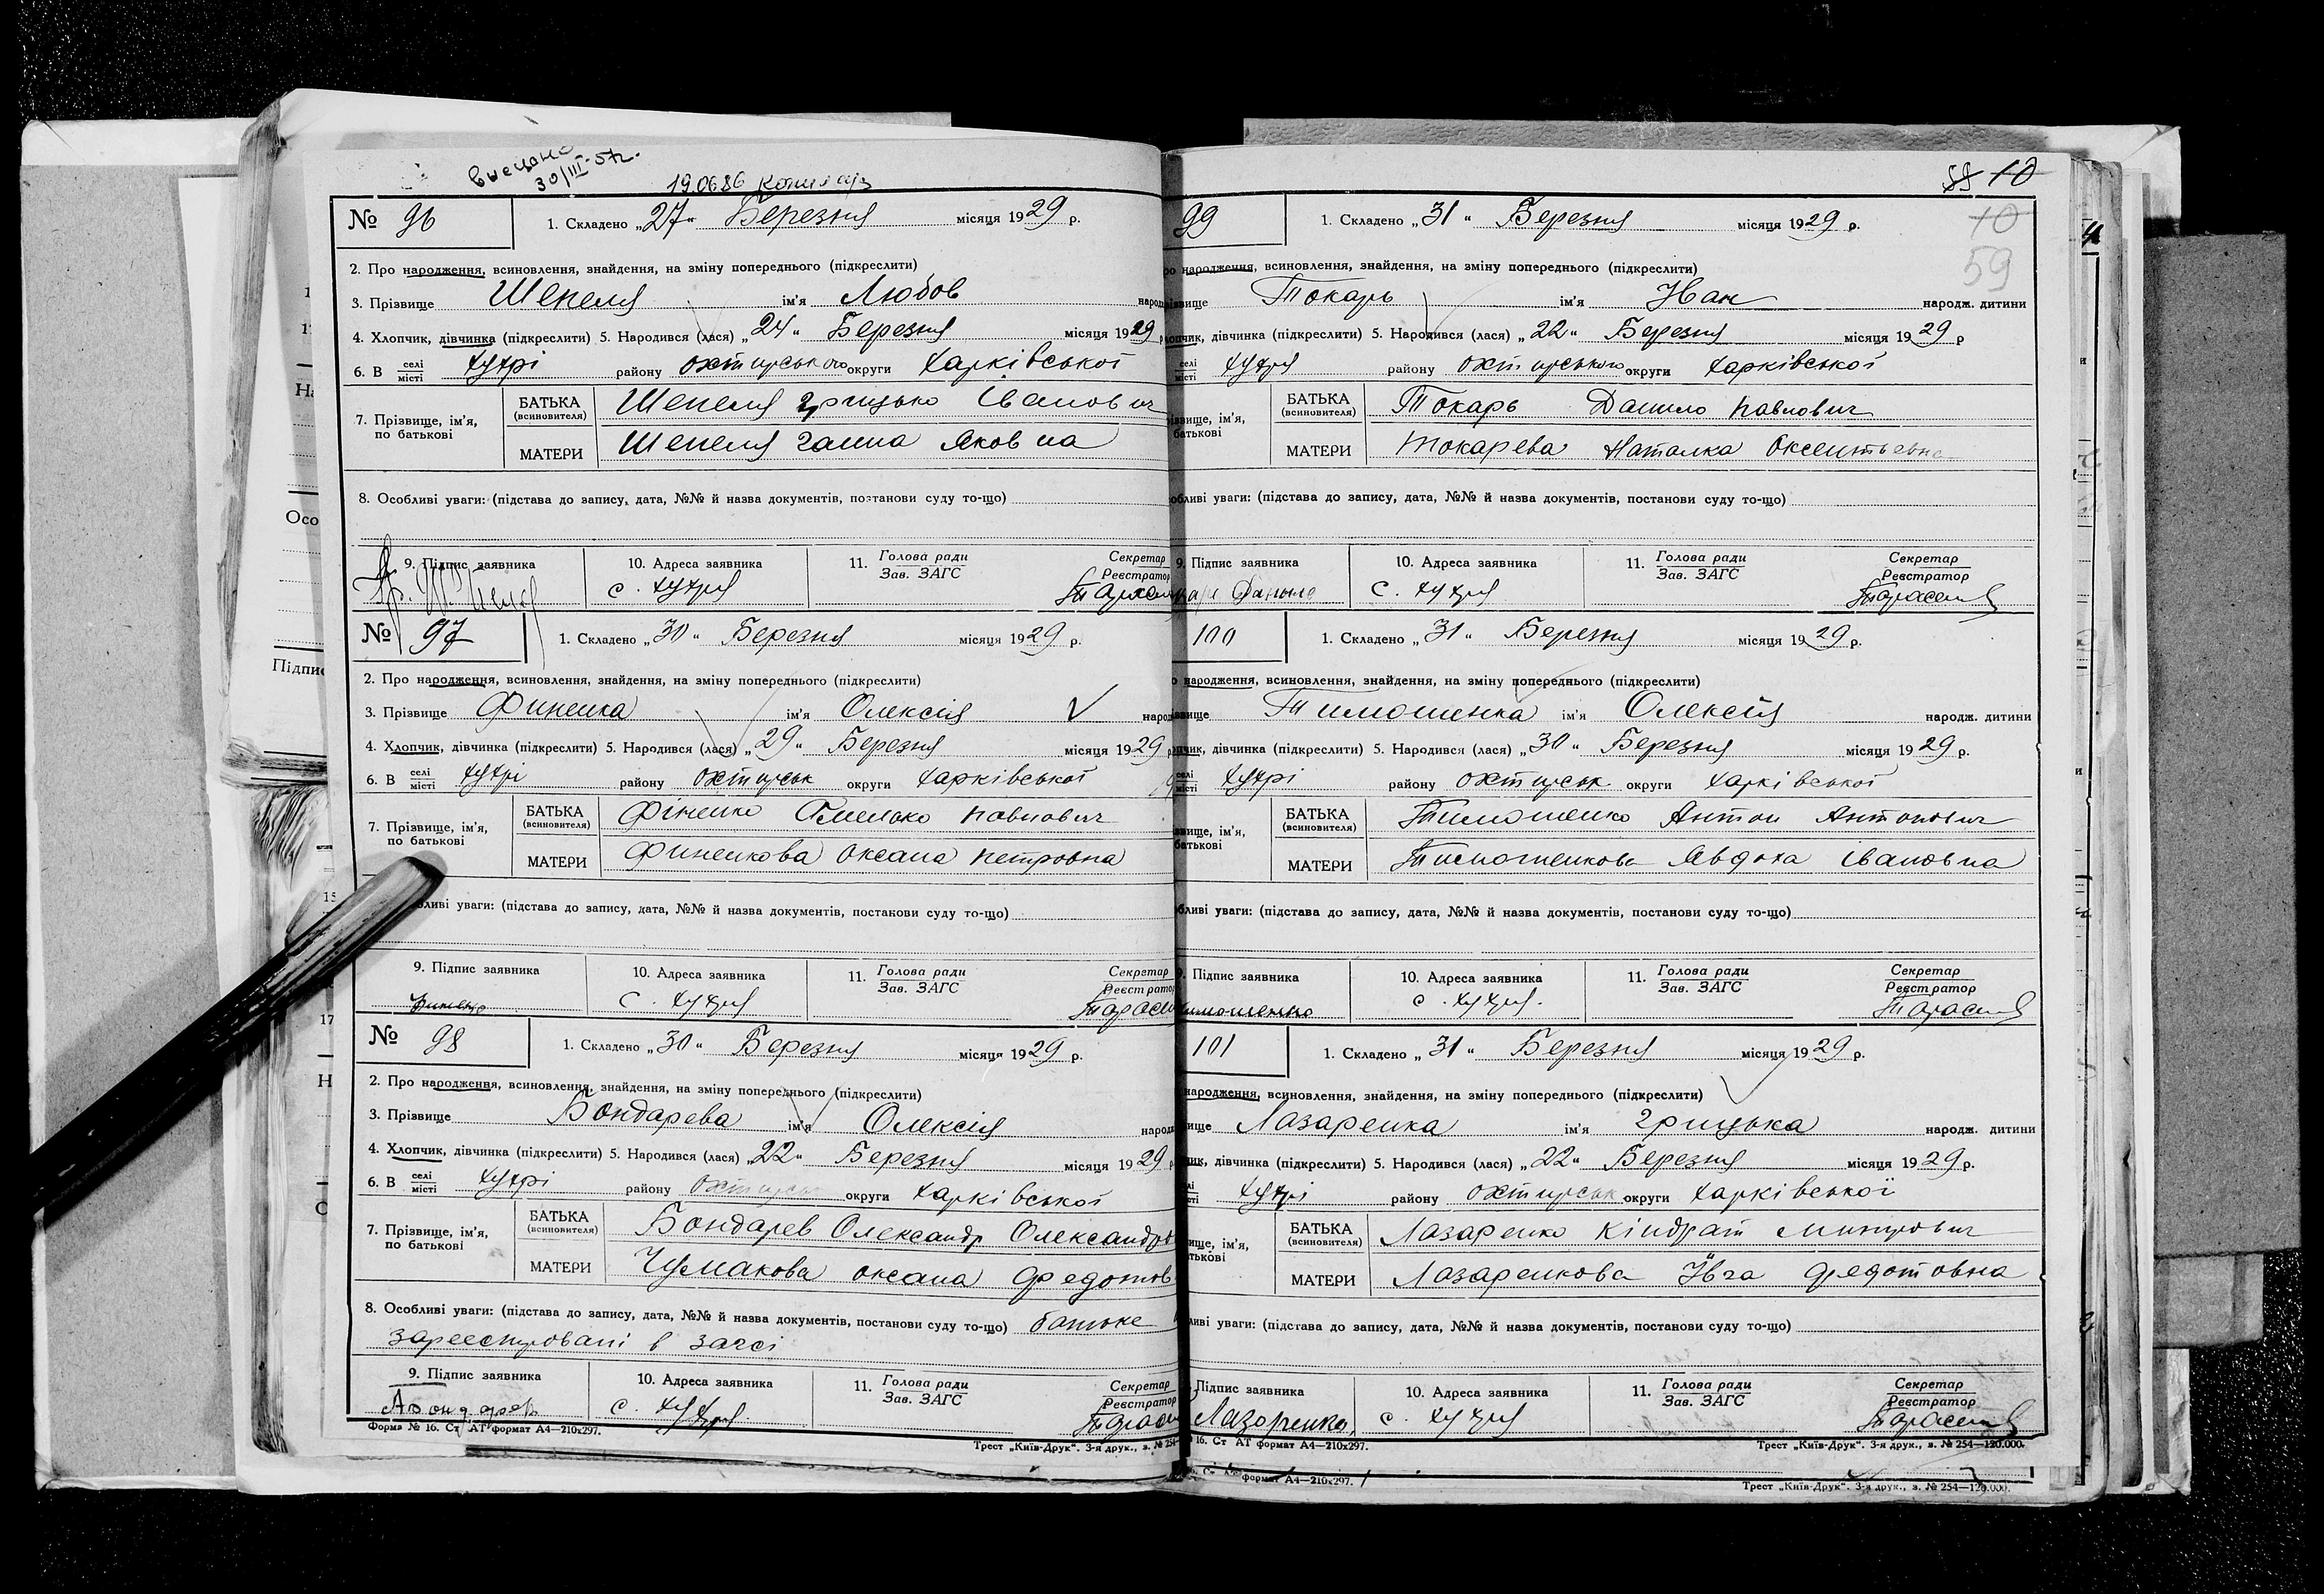 30/III-57г.
190686
№ 96 1. Складено „27“ Березня місяця 1929 р.
2. Про народження, всиновлення, знайдення, на зміну попереднього (підкреслити)
3. Прізвище Шепеля ім'я Любов народ
4. Хлопчик, дівчинка (підкреслити) 5. Народився (лася) „24“ Березня місяця 1929 р
6. В селі місті хухрі району охтирського округи харківської
7. Прізвище, ім'я, по батькові
БАТЬКА (всиновителя) Шепеля грицько Іванович
МАТЕРИ Шепеля ганна Яковна
8. Особливі уваги: (підстава до запису, дата, №№ й назва документів, постанови суду то-що)
9. Підпис заявника 10. Адреса заявника 11. Голова ради Зав. ЗАГС Секретар Реєстратор
с. хухря
№ 97 1. Складено „30“ Березня місяця 1929 р.
2. Про народження, всиновлення, знайдення, на зміну попереднього (підкреслити)
3. Прізвище Финенка ім'я Олексія народ
4. Хлопчик, дівчинка (підкреслити) 5. Народився (лася) „29“ Березня місяця 1929 р
6. В селі місті хухрі району охтирськ округи харківської
7. Прізвище, ім'я, по батькові
БАТЬКА (всиновителя) Фіненко Омелько павлович
МАТЕРИ Финенкова Оксана петровна
бливі уваги: (підстава до запису, дата, №№ й назва документів, постанови суду то-що)
9. Підпис заявника 10. Адреса заявника 11. Голова ради Зав. ЗАГС Секретар Реєстратор
Финенко с. хухря
№ 98 1. Складено „30“ Березня місяця 1929 р.
2. Про народження, всиновлення, знайдення, на зміну попереднього (підкреслити)
3. Прізвище Бондарева ім'я Олексія народ
4. Хлопчик, дівчинка (підкреслити) 5. Народився (лася) „22“ Березня місяця 1929 р
6. В селі місті хухрі району охтирськ округи харківської
7. Прізвище, ім'я, по батькові
БАТЬКА (всиновителя) Бондарев Олександр Олександров
МАТЕРИ Чумакова оксана федотов
8. Особливі уваги: (підстава до запису, дата, №№ й назва документів, постанови суду то-що) батьке
зареестровані в загсі
9. Підпис заявника 10. Адреса заявника 11. Голова ради Зав. ЗАГС Секретар Реєстратор
с. хухря
Форма № 16. Ст АТ формат А4—210х297.
Трест „Київ-Друк“. 3-я друк., з. № 254
10
10
59
99 1. Складено „31“ Березня місяця 1929 р.
о народження, всиновлення, знайдення, на зміну попереднього (підкреслити)
вище Токарь ім'я Іван народж. дитини
опчик, дівчинка (підкреслити) 5. Народився (лася) „22“ Березня місяця 1929 р
селі місті хухря району охтирського округи харківської
вище, ім'я, батькові
БАТЬКА (всиновителя) Токарь Данило павлович
МАТЕРИ Токарева Наталка Оксентьевна
обливі уваги: (підстава до запису, дата, №№ й назва документів, постанови суду то-що)
9. Підпис заявника 10. Адреса заявника 11. Голова ради Зав. ЗАГС Секретар Реєстратор
Даныло с. хухря
100 1. Складено „31“ Березня місяця 1929 р.
о народження, всиновлення, знайдення, на зміну попереднього (підкреслити)
звище Тимошенка ім'я Олексія народж. дитини
пчик, дівчинка (підкреслити) 5. Народився (лася) „30“ Березня місяця 1929 р.
селі місті хухрі району охтирськ. округи харківської
звище, ім'я, батькові
БАТЬКА (всиновителя) Тимошенко Антон Антонович
МАТЕРИ Тимошенкова Явдоха Івановна
бливі уваги: (підстава до запису, дата, №№ й назва документів, постанови суду то-що)
9. Підпис заявника 10. Адреса заявника 11. Голова ради Зав. ЗАГС Секретар Реєстратор
имошенко с. хухря.
101 1. Складено „31“ Березня місяця 1929 р.
народження, всиновлення, знайдення, на зміну попереднього (підкреслити)
вище Лазаренка ім'я грицька народж. дитини
чик, дівчинка (підкреслити) 5. Народився (лася) „22“ Березня місяця 1929 р.
хухрі району охтирськ округи харківської
вище, ім'я, тькові
БАТЬКА (всиновителя) Лазаренко Кіндрат митрович
МАТЕРИ Лазаренкова Ївга федотовна
ливі уваги: (підстава до запису, дата, №№ й назва документів, постанови суду то-що)
Підпис заявника 10. Адреса заявника 11. Голова ради Зав. ЗАГС Секретар Реєстратор
Лазоренко с. хухря
16. Ст АТ формат А4—210х297.
Трест „Київ-Друк“. 3-я друк., з. № 254—120.000.
формат А4—210х297.
Трест „Київ-Друк“. 3-я друк., з. № 254—120.000.